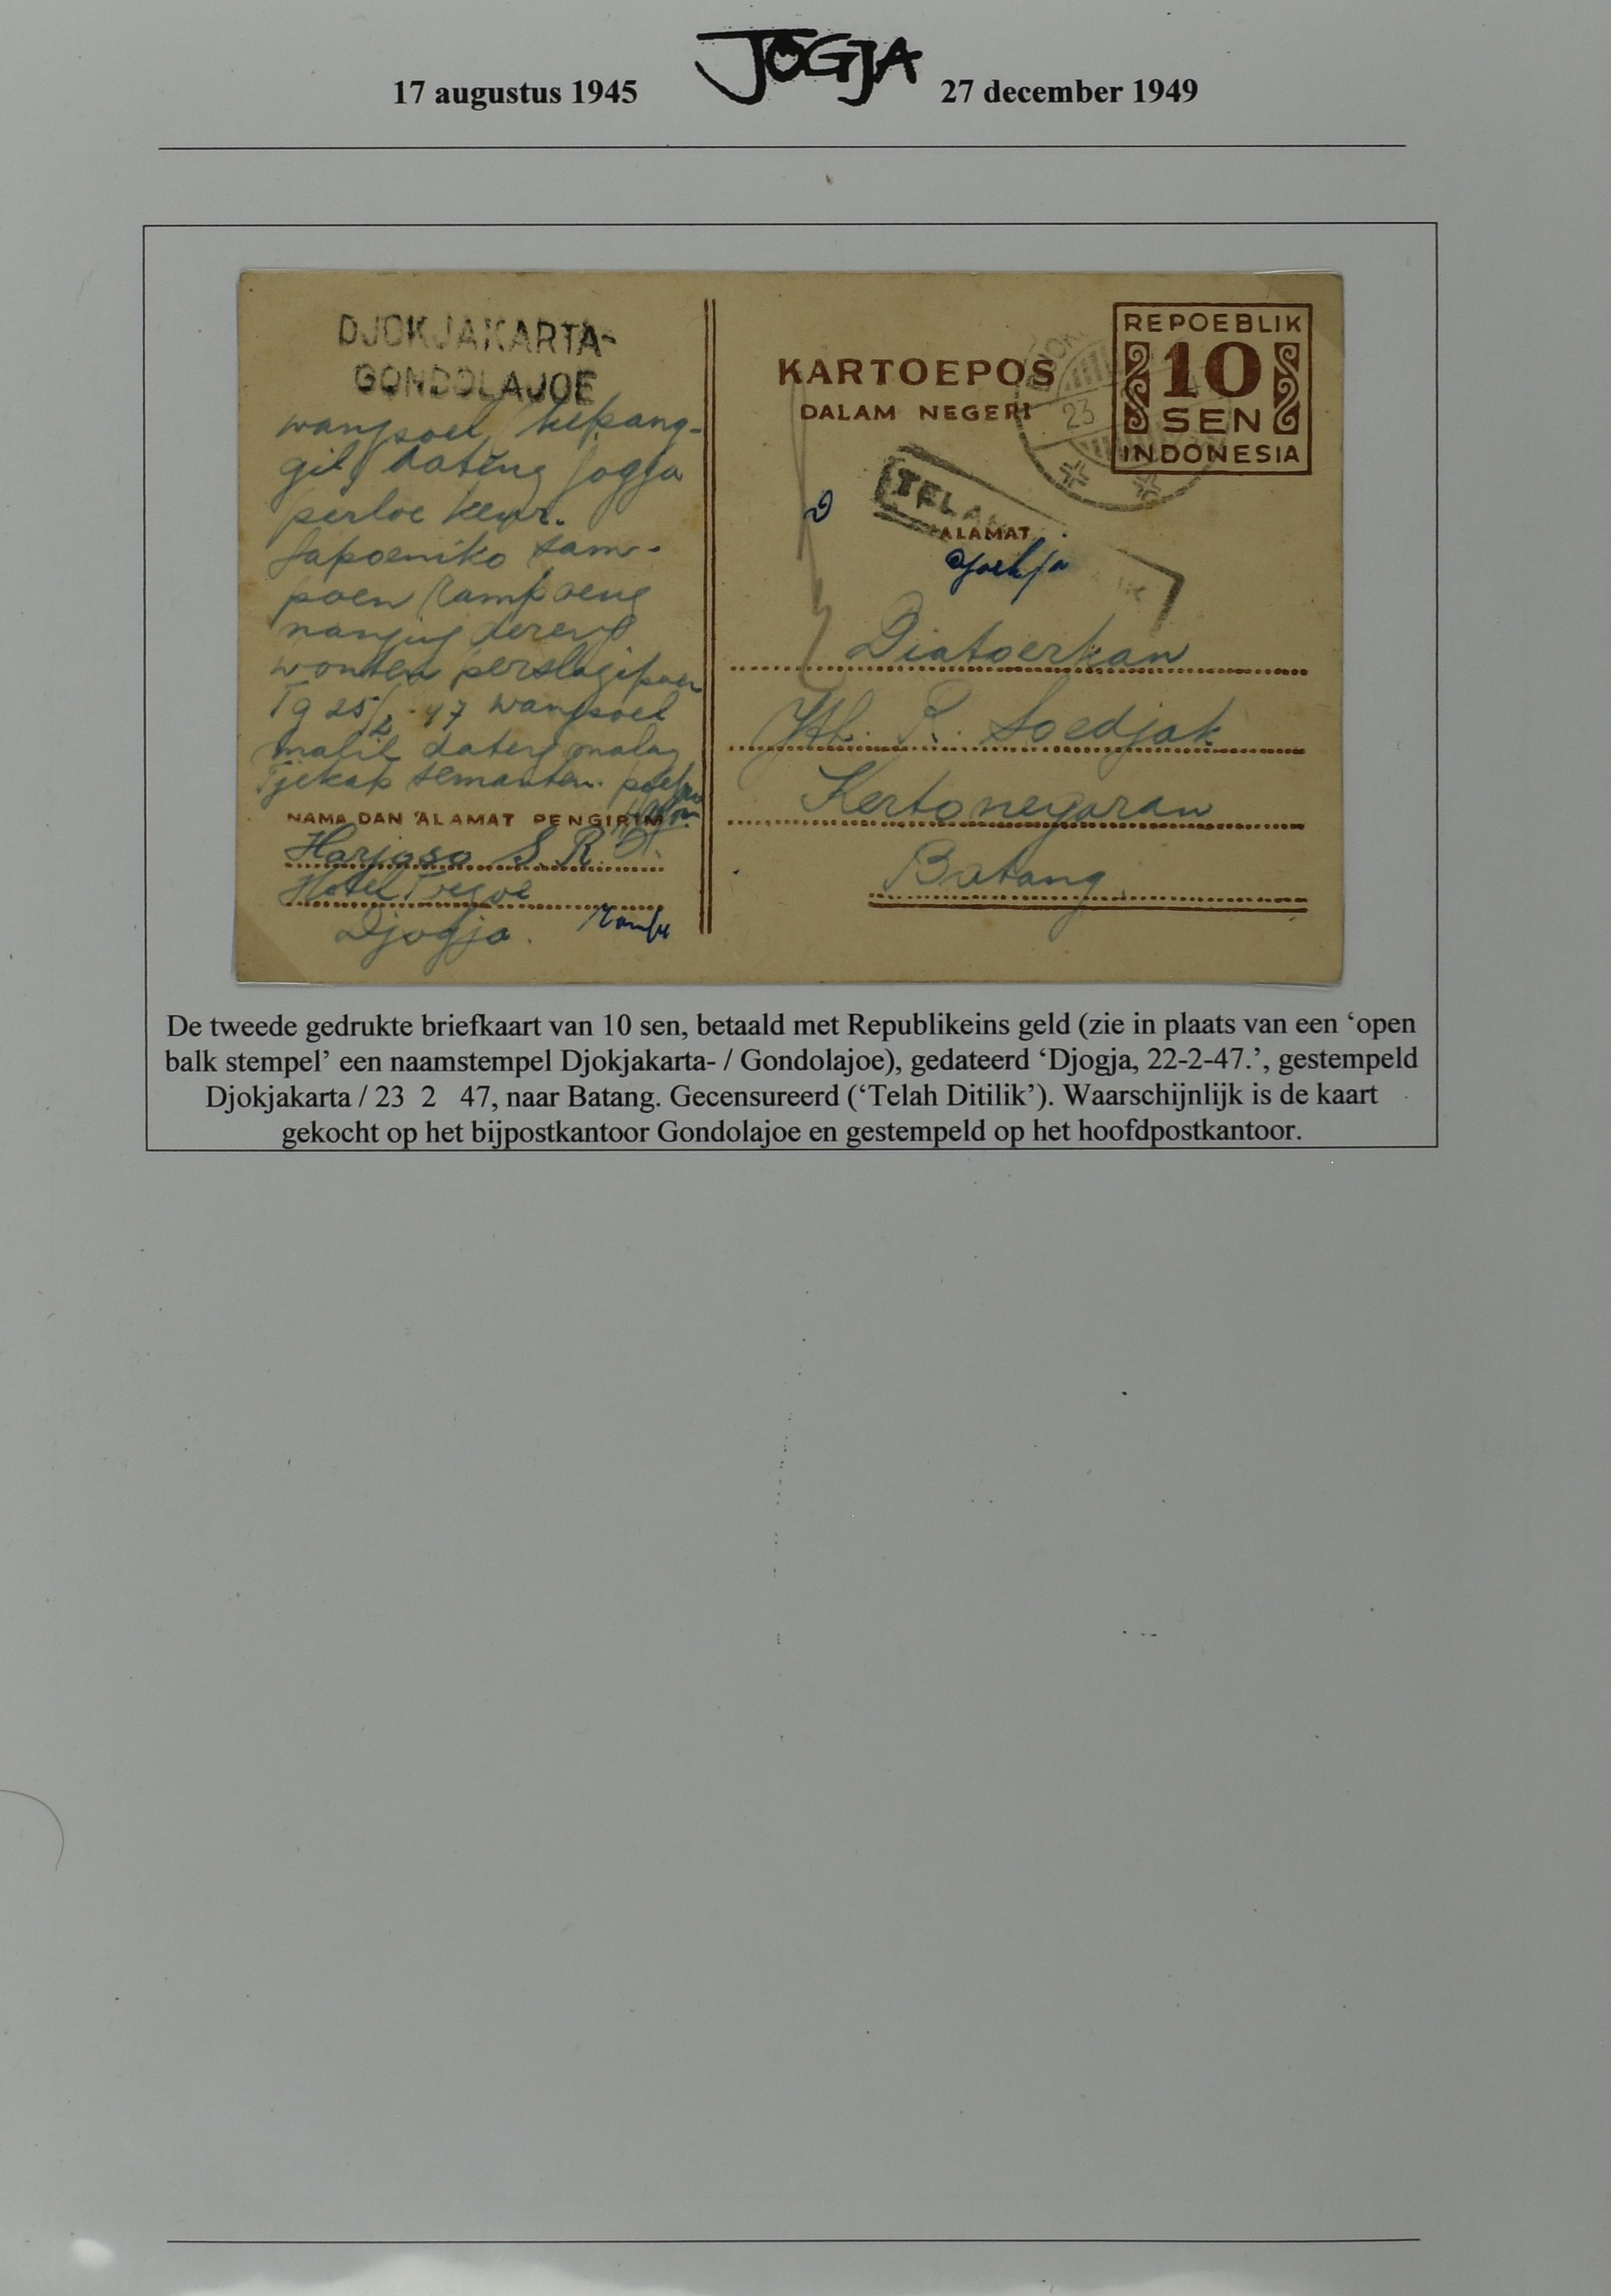 17 augustus 1945 JOGJA 27 december 1949
DJOKJAKARTA-
GONDOLAJOE
wangsoel, kepang-
gil dateng Jogja
perloe keur.
Sapoeniko sam-
poen rampoeng
nanging dereng
wonten perslagipoen
Tg 25/2-47 wangsoel
malih dateng malang
Tjekap semanten.
NAMA DAN ALAMAT PENGIRIM
Harjoso S.R.
Hotel Toegoe
Djogja.
KARTOEPOS
DALAM NEGERI
REPOEBLIK
10
SEN
INDONESIA
DJOK
23
TELAH
ALAMAT
Diatoerkan
Jth. R. Soedjak
Kertonegaran
Batang
De tweede gedrukte briefkaart van 10 sen, betaald met Republikeins geld (zie in plaats van een ‘open
balk stempel’ een naamstempel Djokjakarta- / Gondolajoe), gedateerd ‘Djogja, 22-2-47.’, gestempeld
Djokjakarta / 23 2 47, naar Batang. Gecensureerd (‘Telah Ditilik’). Waarschijnlijk is de kaart
gekocht op het bijpostkantoor Gondolajoe en gestempeld op het hoofdpostkantoor.